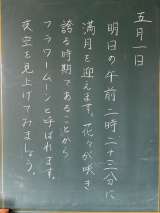 五月一日
明日の午前二時二十三分に
満月を迎えます。花々が咲き
誇る時期であることから
フラワームーンと呼ばれます。
夜空を見上げてみましょう。